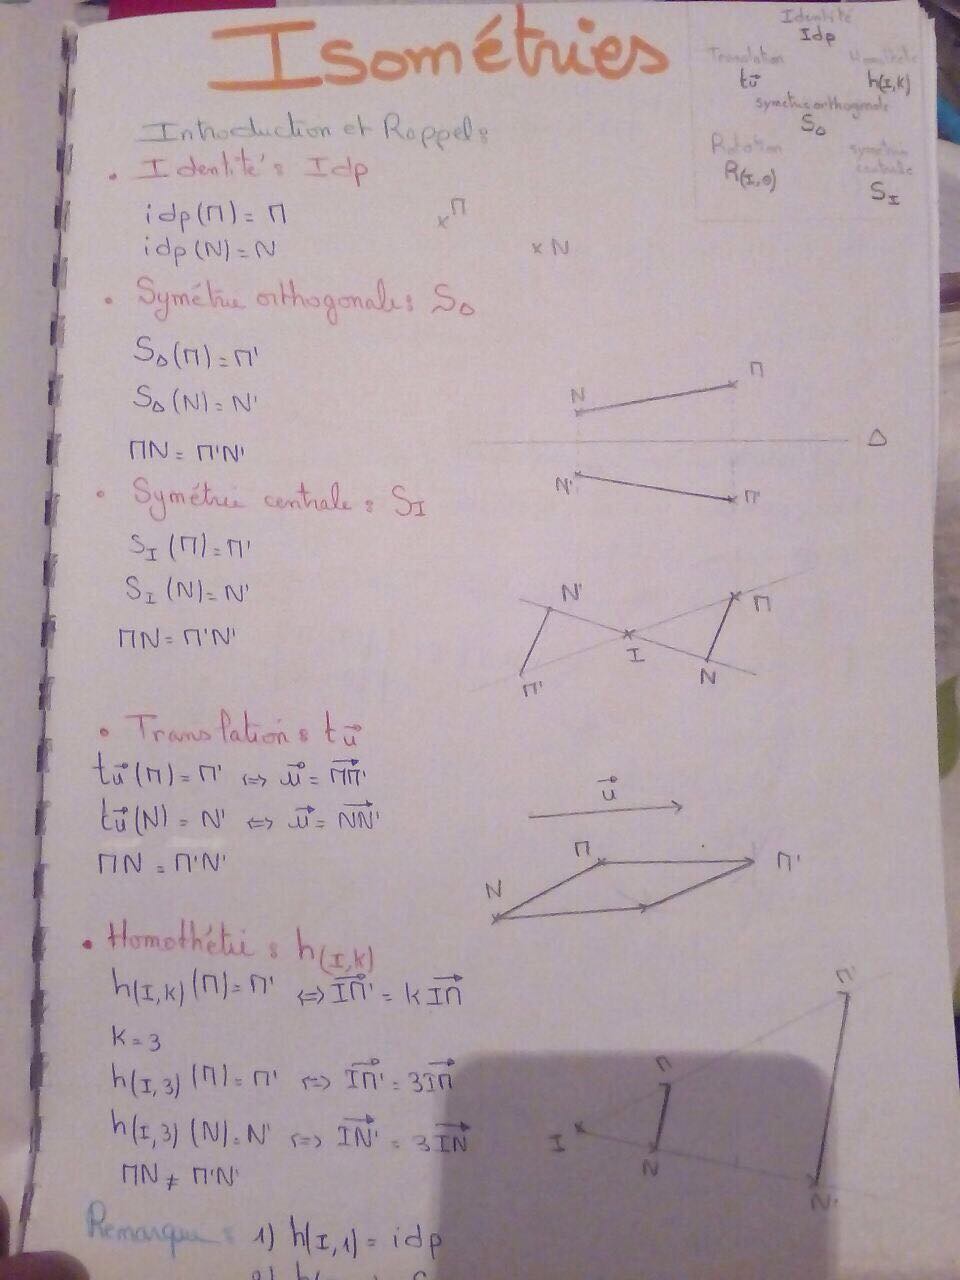 Isométries
Identité
Idp
Translation Homothétie
t_u⃗ h(I,K)
Symétrie orthogonale
S_Δ
Rotation symétrie centrale
R(I,θ) S_I
Introduction et Rappel:
• Identité: Idp
idp(M) = M
idp(N) = N
M
N
• Symétrie orthogonale: S_Δ
S_Δ(M) = M'
S_Δ(N) = N'
MN = M'N'
N M
Δ
N' M'
• Symétrie centrale: S_I
S_I(M) = M'
S_I(N) = N'
MN = M'N'
N' M
I
M' N
• Translation: t_u⃗
t_u⃗(M) = M' ⇔ u⃗ = MM'⃗
t_u⃗(N) = N' ⇔ u⃗ = NN'⃗
MN = M'N'
u⃗
M M'
N
• Homothétie: h(I,K)
h(I,K)(M) = M' ⇔ IM'⃗ = k IM⃗
k = 3
h(I,3)(M) = M' ⇔ IM'⃗ = 3IM⃗
h(I,3)(N) = N' ⇔ IN'⃗ = 3IN⃗
MN ≠ M'N'
M'
M
I
N
N'
Remarque: 1) h(I,1) = idp